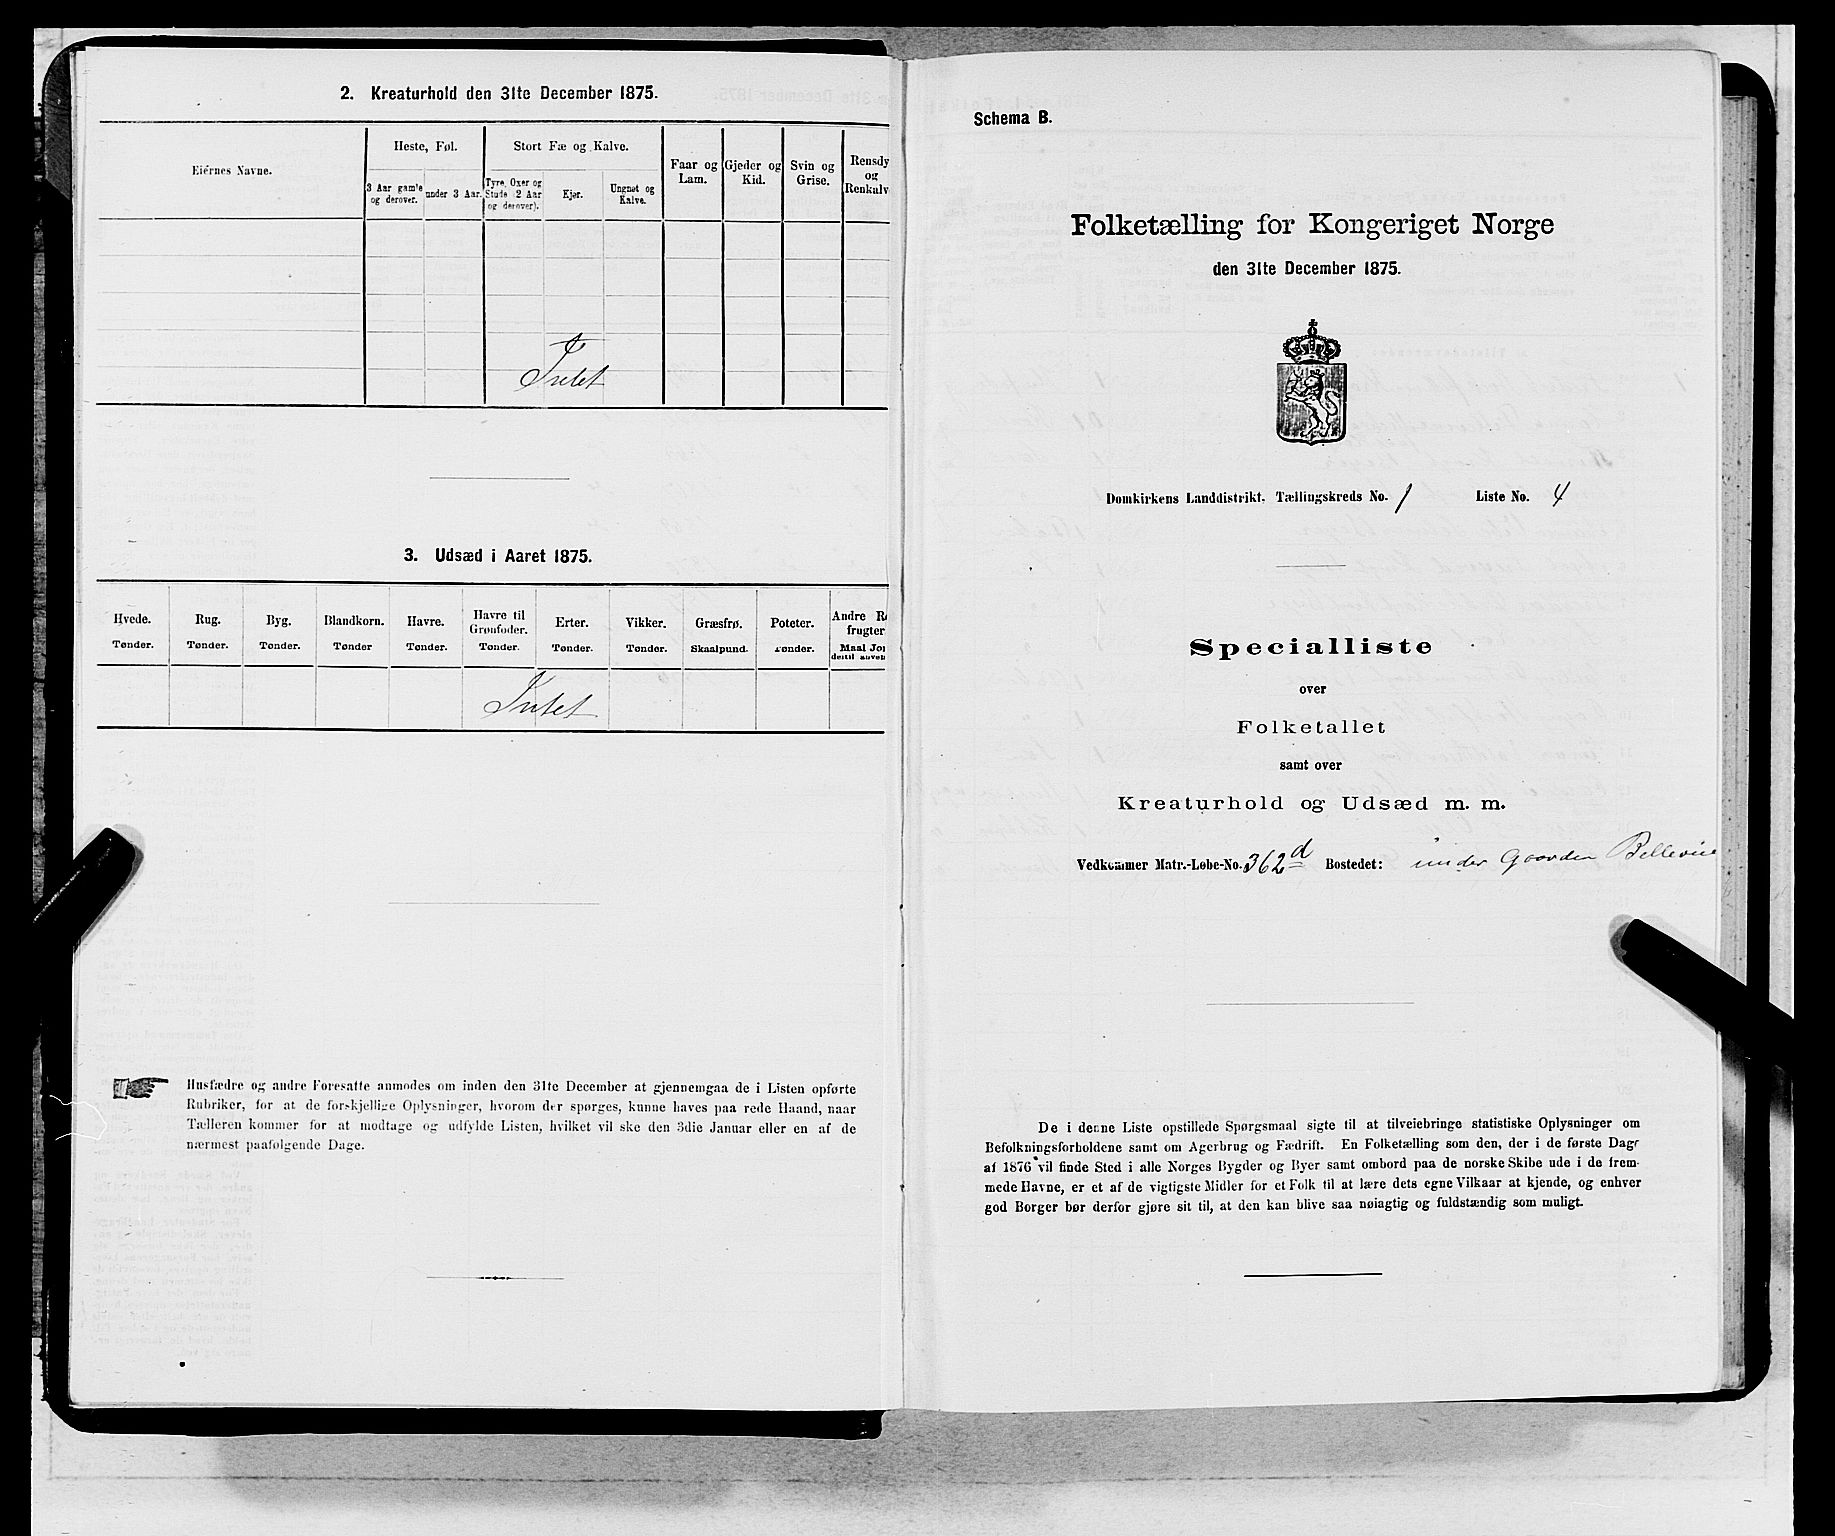 2. Kreaturhold den 31te December 1875.
Eiernes Navne.
Heste, Føl.
Stort Fæ og Kalve.
Faar og Lam.
Gjeder og Kid.
Svin og Grise.
Rensdy
og
Renkalv
3 Aar gamle og derover.
under 3 Aar.
Tyre, Oxer og Stude (2 Aar og derover).
Kjør.
Ungnøt og Kalve.
Intet
3. Udsæd i Aaret 1875.
Hvede. Rug. Byg. Blandkorn. Havre. Havre til Grønfoder. Erter. Vikker. Græsfrø. Poteter. Andre R
frugter
Tønder. Tønder. Tønder. Tønder Tønder. Tønder. Tønder. Tønder. Skaalpund. Tønder. Maal Jor
dertil anven
Intet
Husfædre og andre Foresatte anmodes om inden den 31te December at gjennemgaa de i Listen opførte
Rubriker, for at de forskjellige Oplysninger, hvorom der spørges, kunne haves paa rede Haand, naar
Tælleren kommer for at modtage og udfylde Listen, hvilket vil ske den 3die Januar eller en af de
nærmest paafølgende Dage.
Schema B.
Folketælling for Kongeriget Norge
den 31te December 1875.
Domkirkens Landdistrikt. Tællingskreds No. 1 Liste No. 4
Specialliste
over
Folketallet
samt over
Kreaturhold og Udsæd m. m.
Vedkommer Matr.-Løbe-No. 362d Bostedet: under Gaarden Bellevüe
De i denne Liste opstillede Spørgsmaal sigte til at tilveiebringe statistiske Oplysninger om
Befolkningsforholdene samt om Agerbrug og Fædrift. En Folketælling som den, der i de første Dage
af 1876 vil finde Sted i alle Norges Bygder og Byer samt ombord paa de norske Skibe ude i de frem-
mede Havne, er et af de vigtigste Midler for et Folk til at lære dets egne Vilkaar at kjende, og enhver
god Borger bør derfor gjøre sit til, at den kan blive saa nøiagtig og fuldstændig som muligt.